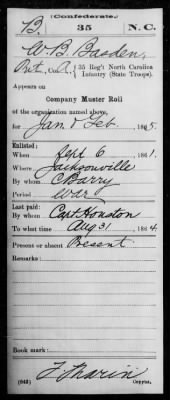 (Confederate.)
B 35 N.C.
W B Basden,
Pvt, Co. A, 35 Reg't North Carolina
Infantry (State Troops).
Appears on
Company Muster Roll
of the organization named above,
for Jan & Feb, 1865.
Enlisted:
When Sept 6, 1861.
Where Jacksonville
By whom C Barry
Period War
Last paid:
By whom Capt Houston
To what time Aug 31, 1864.
Present or absent Present
Remarks:
Book mark:
(642)
Copyist.